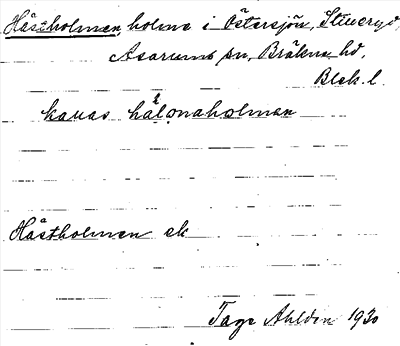 Hästholmen, holme i Östersjön, Stureryd,
Asarums sn, Bräkne hd,
Blek. l.
kallas hälonaholman
Hästholmen ek
Tage Ahldén 1930